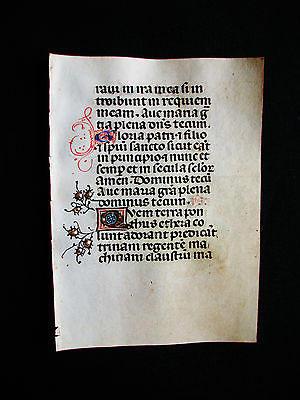 raui in ira mea si in
troibunt in requiem
meam. aue maria g̃
tia plena dn̄s tecum.
Gloria patri ⁊ filio
⁊ sp̄ui sancto sicut eāt
in principio ⁊ nunc et
semp̱ et in secula seclor̄
amen. Dominus tecū
aue maria gr̄a plena
dominus tecum. ps̄.
Quem terra pon
thus ethera co
lunt adorant predicāt
trinam regentē ma
chinam claustrū ma